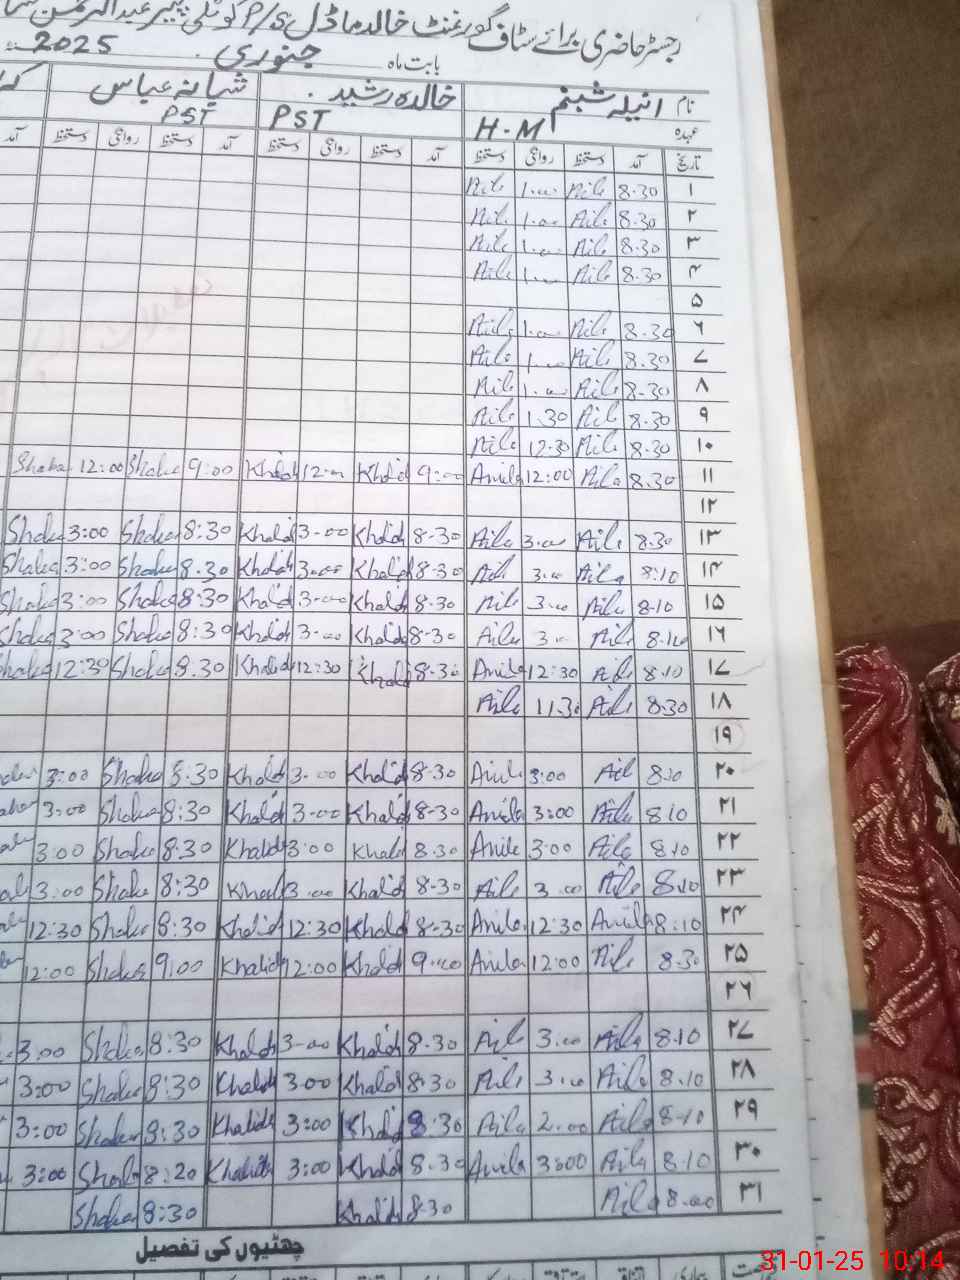 رجسٹر حاضری برائے سٹاف گورنمنٹ خالد ماڈل P/S کوٹلی پیر عبدالرحمن
بابت ماہ جنوری 2025
نام انیلہ شبنم خالدہ رشید شہانہ عباس
عہدہ H.M PST PST
تاریخ آمد دستخط روانگی دستخط آمد دستخط روانگی دستخط آمد دستخط روانگی دستخط
۱ 8.30 Aila 1.00 Aila
۲ 8.30 Aila 1.00 Aila
۳ 8.30 Aila 1.00 Aila
۴ 8.30 Aila 1.00 Aila
۵
۶ 8.30 Aila 1.00 Aila
۷ 8.30 Aila 1.00 Aila
۸ 8.30 Aila 1.00 Aila
۹ 8.30 Aila 1.30 Aila
۱۰ 8.30 Aila 12.30 Aila
۱۱ 8.30 Aila 12:00 Anila 9:00 Khalid 12:00 Khalid 9:00 Shaha 12:00 Shaha
۱۲
۱۳ 8.30 Aila 3.00 Aila 8-30 Khalid 3-00 Khalid 8:30 Shaha 3:00 Shaha
۱۴ 8.10 Aila 3.00 Aila 8-30 Khalid 3.00 Khalid 8.30 Shaha 3:00 Shaha
۱۵ 8.10 Aila 3.00 Aila 8.30 Khalid 3-00 Khalid 8:30 Shaha 3:00 Shaha
۱۶ 8.10 Aila 3.00 Aila 8-30 Khalid 3-00 Khalid 8:30 Shaha 3:00 Shaha
۱۷ 8.10 Aila 12:30 Anila 8-30 Khalid 12:30 Khalid 8.30 Shaha 12:30 Shaha
۱۸ 8.30 Aila 11.30 Aila
۱۹
۲۰ 8.10 Aila 3:00 Anila 8-30 Khalid 3-00 Khalid 8.30 Shaha 3:00
۲۱ 8.10 Aila 3:00 Anila 8-30 Khalid 3-00 Khalid 8:30 Shaha 3:00
۲۲ 8.10 Aila 3:00 Anila 8.30 Khalid 3:00 Khalid 8:30 Shaha 3:00
۲۳ 8.10 Aila 3.00 Aila 8-30 Khalid 3.00 Khalid 8:30 Shaha 3:00
۲۴ 8.10 Anila 12:30 Anila 8-30 Khalid 12:30 Khalid 8:30 Shaha 12:30
۲۵ 8.30 Aila 12:00 Anila 9.00 Khalid 12:00 Khalid 9:00 Shaha 12:00
۲۶
۲۷ 8.10 Aila 3.00 Aila 8-30 Khalid 3-00 Khalid 8:30 Shaha 3:00
۲۸ 8.10 Aila 3.00 Aila 8.30 Khalid 3:00 Khalid 8:30 Shaha 3:00
۲۹ 8-10 Aila 2.00 Aila 8.30 Khalid 3:00 Khalid 8:30 Shaha 3:00
۳۰ 8.10 Aila 3:00 Anila 8.30 Khalid 3:00 Khalid 8:20 Shaha 3:00
۳۱ 8.00 Aila 8-30 Khalid 8:30 Shaha
چھٹیوں کی تفصیل
31-01-25 10:14